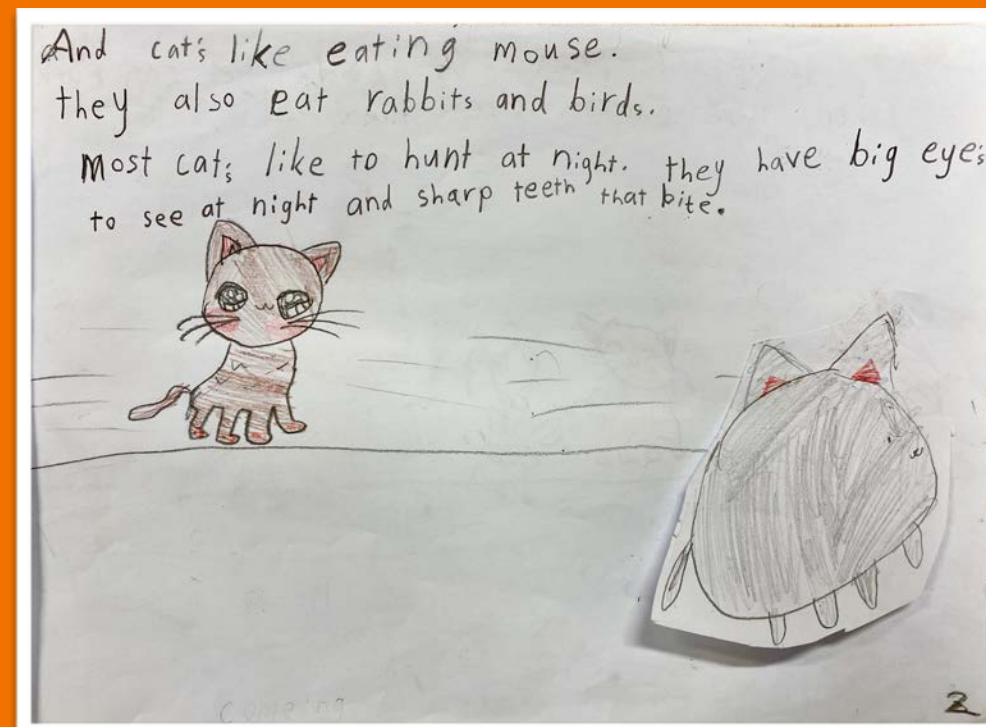 And cat's like eating mouse.
they also eat rabbits and birds.
most cat's like to hunt at night. they have big eye's
to see at night and sharp teeth that bite.
comeing
2